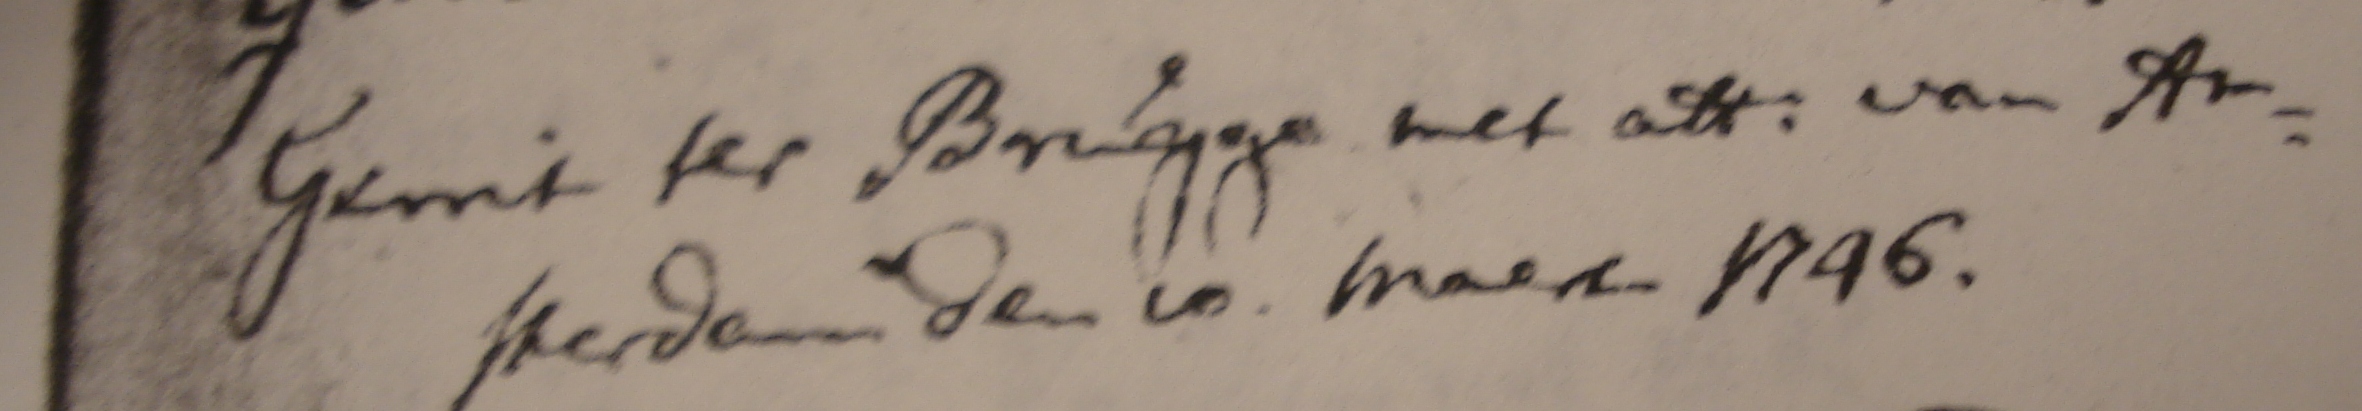 Gerrit ter Brugge met att: van Am=
sterdam den 10. Maert 1746.